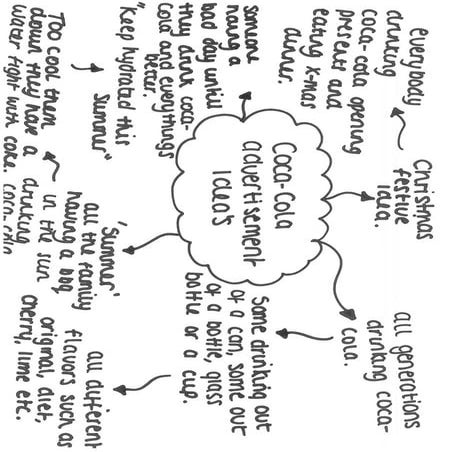 Coca-Cola
advertisement
Idea's
Christmas
festive
idea.
everybody
drinking
coca-cola opening
presents and
eating x-mas
dinner.
all generations
drinking coca-
cola.
Some drinking out
of a can, some out
of a bottle, glass
bottle or a cup.
all different
flavors such as
original, diet,
cherry, lime etc.
'Summer'
all the family
having a bbq
in the sun
drinking
coca-cola
Too cool them
down they have a
water fight with coke.
"Keep hydrated this
summer"
someone
having a
bad day untill
they drink coca-
cola and everythings
better.